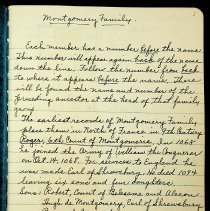 Montgomery Family.
Each member has a number before the name
This number will appear again back of the name
down the line. Follow the number from back
to where it appears before the name. There
will be found the name and number of the
preceding ancestor at the head of that family
group.
The earliest records of Montgomery Family
place them in North of France in 9th Century
Roger, Count of Montgomerie. In 1068
he joined the Army of William the Conqueror
on Oct. 14, 1068. For services to England he
was made Earl of Shrewsbury. He died 1094
leaving six sons and four daughters.
Sons: Robert, Count of and Alencon
Hugh de Montgomery, Earl of Shrewsbury